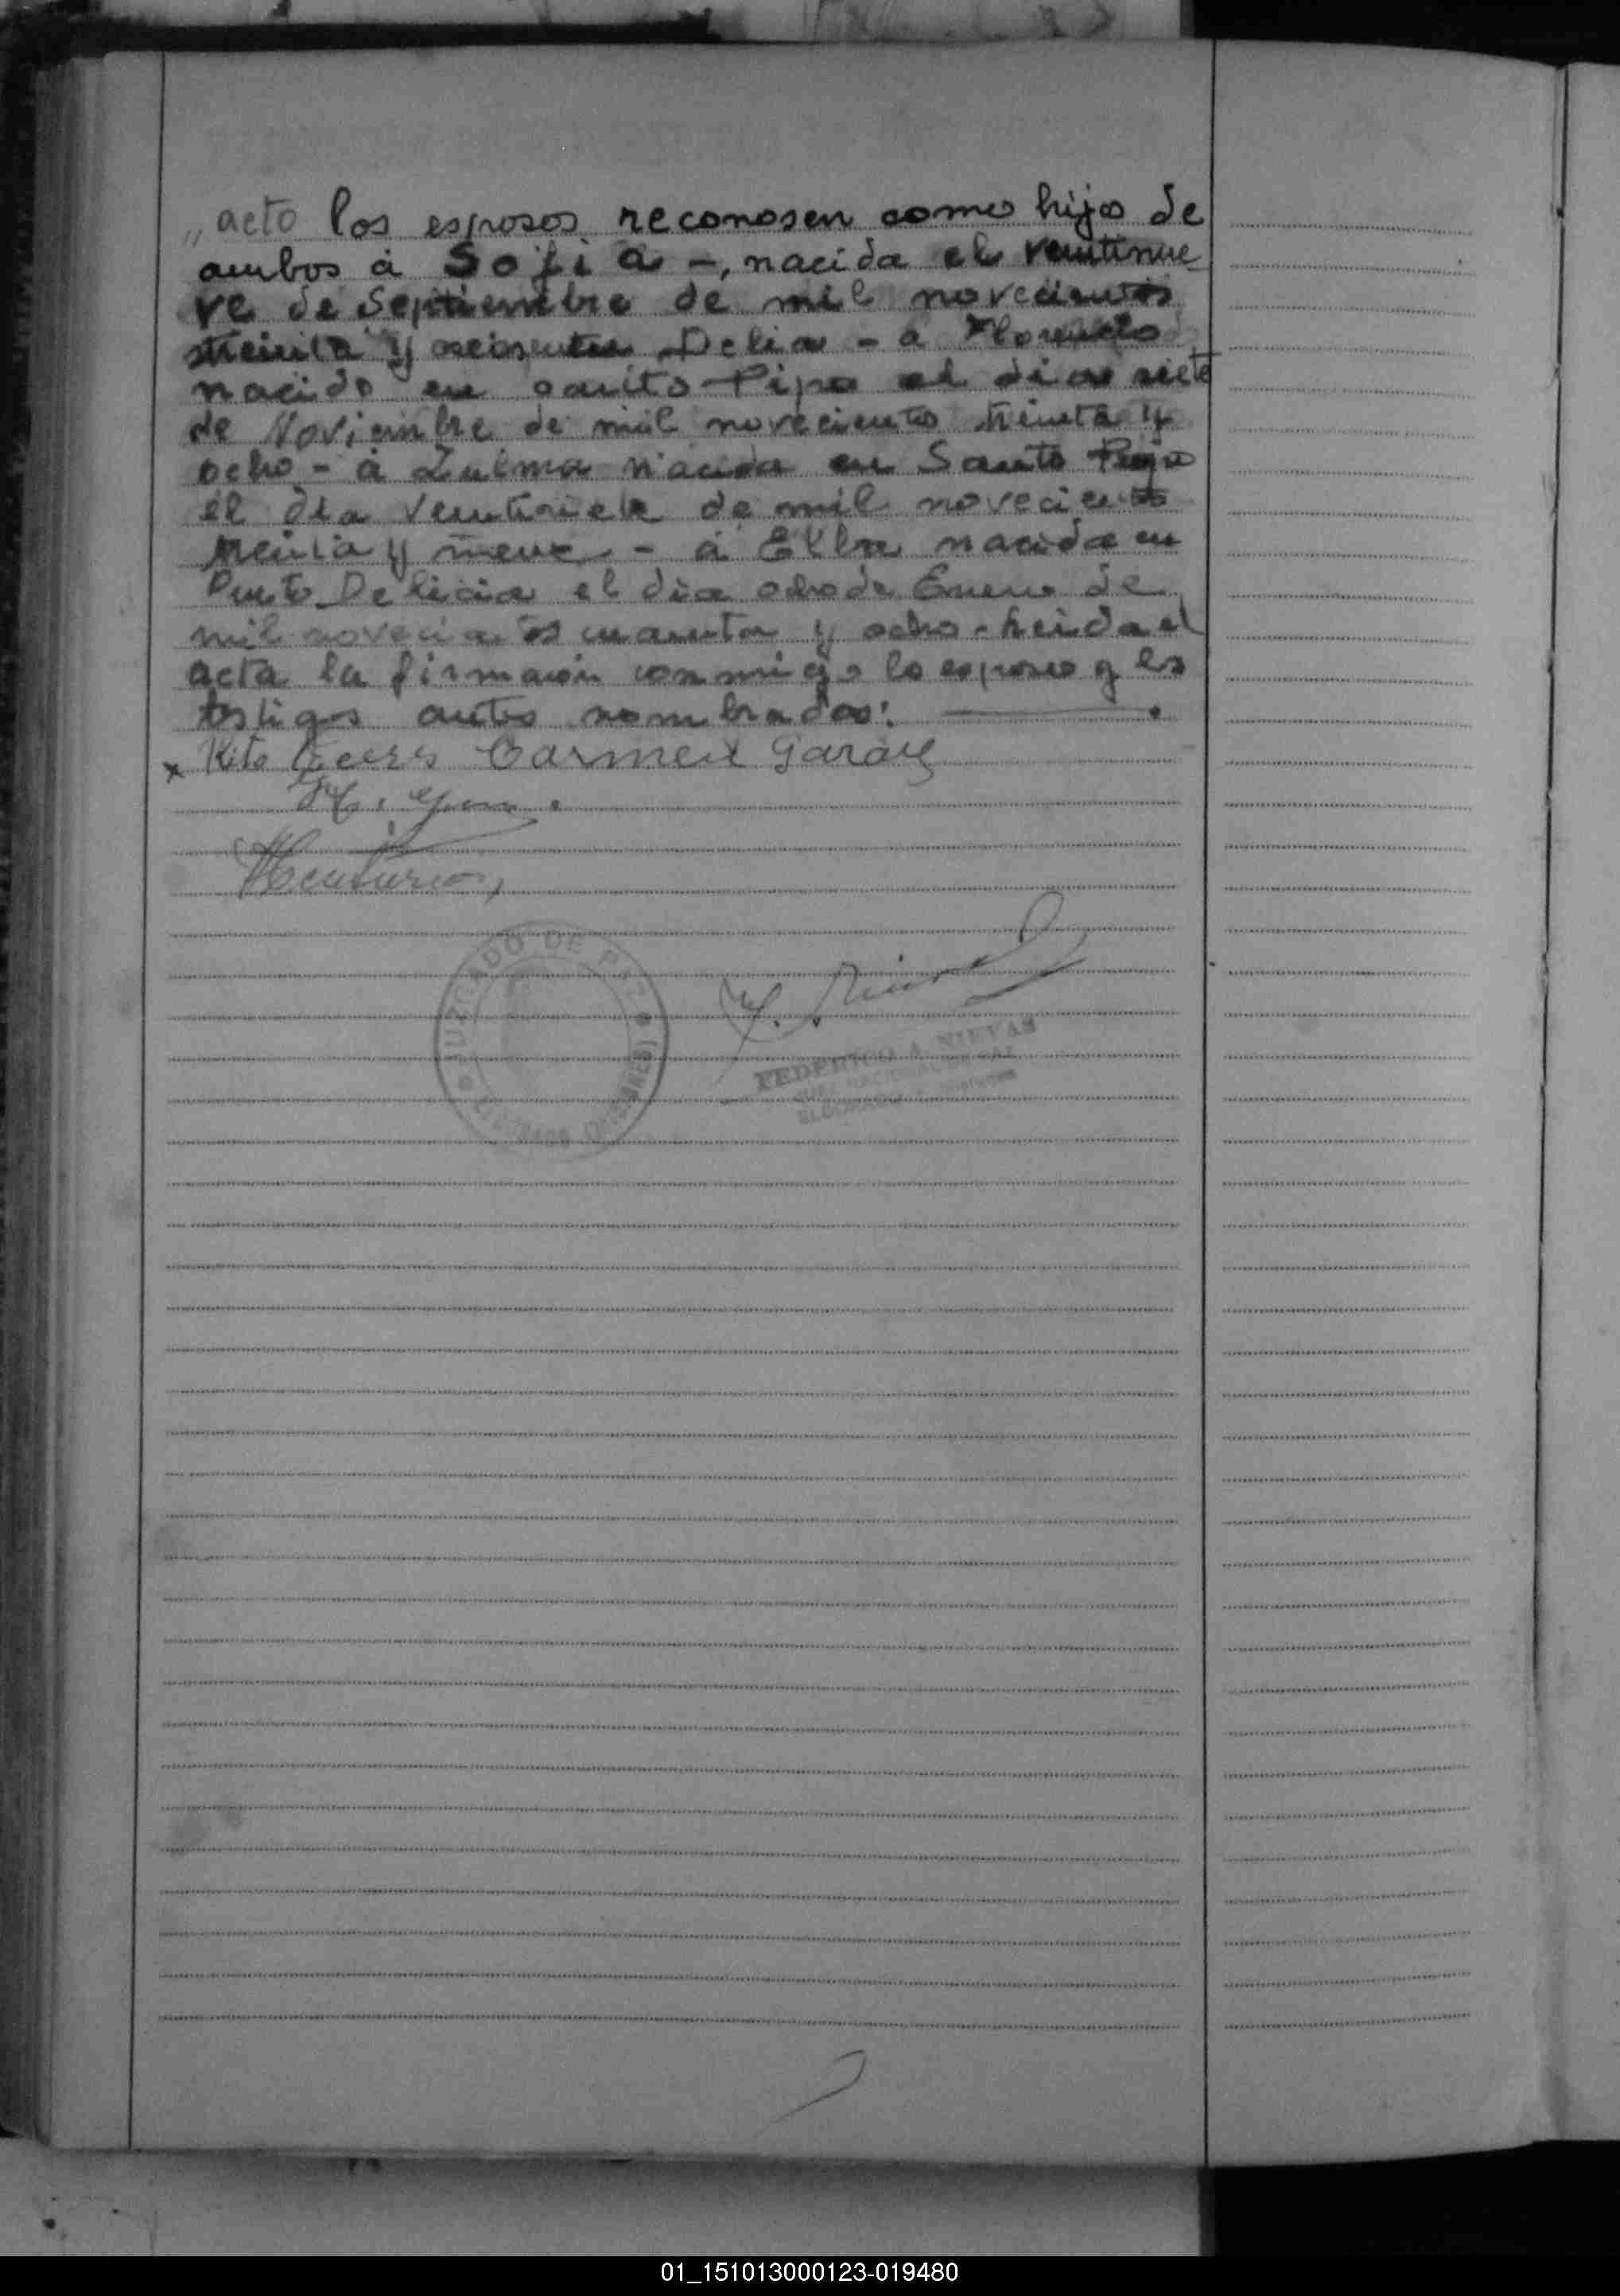 „ acto los esposos reconosen como hijo de
ambos á Sofia -, nacida el veintinue
ve de Septiembre de mil novecientos
treinta y seis en Delia - a Florencio
nacido en Santo Pipo el dia siete
de Noviembre de mil novecientos treinta y
ocho - á Zulma nacida en Santo Pipo
el dia veintisiete de mil novecientos
treinta y nueve - á Elba nacida en
Puerto Delicia el dia ocho de Enero de
mil novecientos cuarenta y ocho - leida el
acta la firmaron conmigo lo esposo y los
testigos antes nombrados:
x Kito Carmen Garay
JUZGADO DE PAZ
(MISIONES)
FEDERICO A. NIEVAS
JUEZ NACIONAL DE PAZ
ELDORADO
01_151013000123-019480